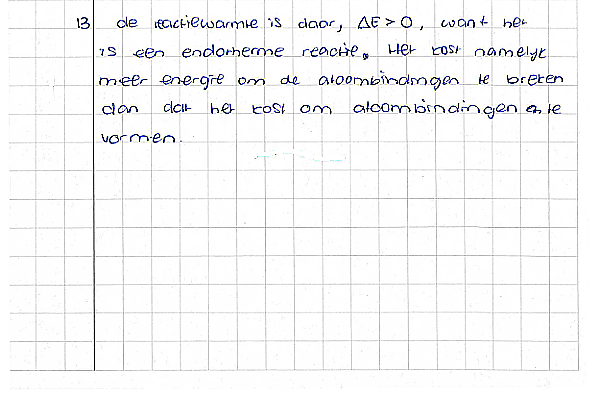 13 de reactiewarmte is daar, ΔE > 0, want het
is een endotherme reactie. Het kost namelijk
meer energie om de atoombindingen te breken
dan dat het kost om atoombindingen te
vormen.